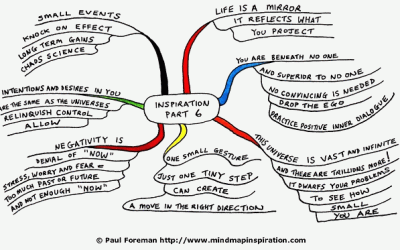 SMALL EVENTS
KNOCK ON EFFECT
LONG TERM GAINS
CHAOS SCIENCE
LIFE IS A MIRROR
IT REFLECTS WHAT
YOU PROJECT
YOU ARE BENEATH NO ONE
AND SUPERIOR TO NO ONE
NO CONVINCING IS NEEDED
DROP THE EGO
PRACTICE POSITIVE INNER DIALOGUE
INTENTIONS AND DESIRES IN YOU
ARE THE SAME AS THE UNIVERSES
RELINQUISH CONTROL
ALLOW
INSPIRATION
PART 6
NEGATIVITY IS
DENIAL OF "NOW"
STRESS, WORRY AND FEAR =
TOO MUCH PAST OR FUTURE
AND NOT ENOUGH "NOW"
ONE SMALL GESTURE
JUST ONE TINY STEP
CAN CREATE
A MOVE IN THE RIGHT DIRECTION
THIS UNIVERSE IS VAST AND INFINITE
AND THERE ARE TRILLIONS MORE!
IT DWARFS YOUR PROBLEMS
TO SEE HOW
SMALL
YOU ARE
© Paul Foreman http://www.mindmapinspiration.com